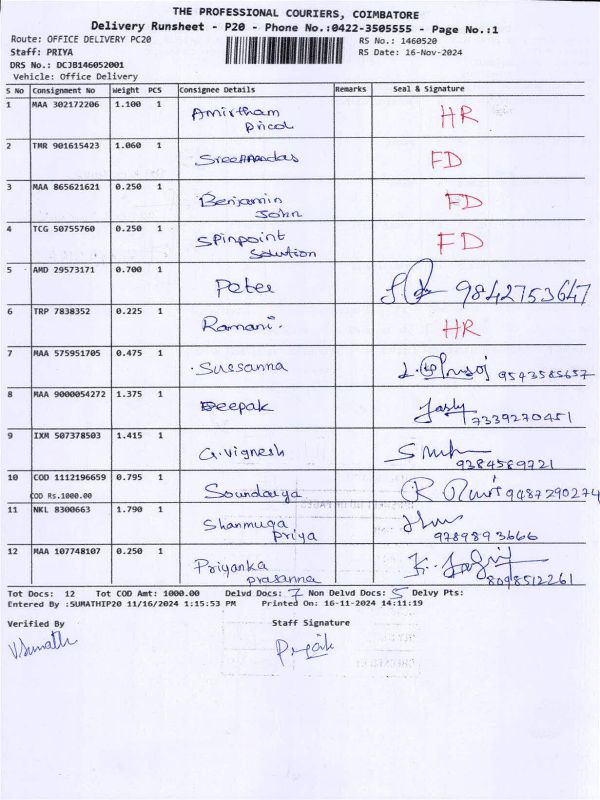 THE PROFESSIONAL COURIERS, COIMBATORE
Delivery Runsheet - P20 - Phone No.:0422-3505555 - Page No.:1
Route: OFFICE DELIVERY PC20 RS No.: 1460520
Staff: PRIYA RS Date: 16-Nov-2024
DRS No.: DCJB146052001
Vehicle: Office Delivery
S No Consignment No Weight PCS Consignee Details Remarks Seal & Signature
1 MAA 302172206 1.100 1 Amirtham HR
Pricol
2 TMR 901615423 1.060 1 FD
3 MAA 865621621 0.250 1 Benjamin FD
John
4 TCG 50755760 0.250 1 Spinpoint FD
Solution
5 AMD 29573171 0.700 1 Peter 9842753647
6 TRP 7838352 0.225 1 Ramani. HR
7 MAA 575951705 0.475 1 Suesanna 9543585657
8 MAA 9000054272 1.375 1 Deepak 7339270451
9 IXM 507378503 1.415 1 G.Vignesh 9384589721
10 COD 1112196659 0.795 1 Soundarya 9487290274
COD Rs.1000.00
11 NKL 8300663 1.790 1 Shanmuga
Priya 9789893666
12 MAA 107748107 0.250 1 Priyanka
prasanna 8098512261
Tot Docs: 12 Tot COD Amt: 1000.00 Delvd Docs: 7 Non Delvd Docs: 5 Delvy Pts:
Entered By :SUMATHIP20 11/16/2024 1:15:53 PM Printed On: 16-11-2024 14:11:19
Verified By Staff Signature
V.Sumathi